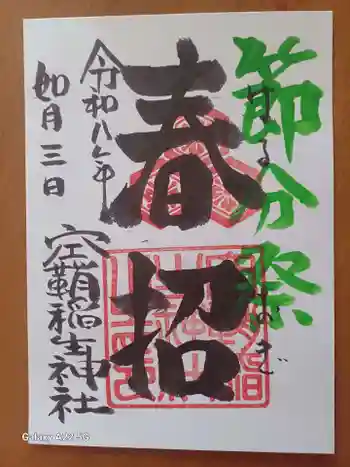 節分祭
春招
令和八年
如月三日
空鞘稲生神社
Galaxy A25 5G